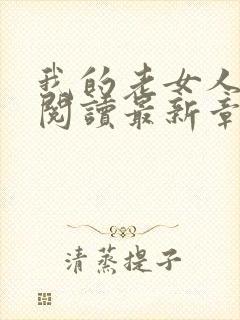 我的老女人
閱讀最新章
清蒸提子